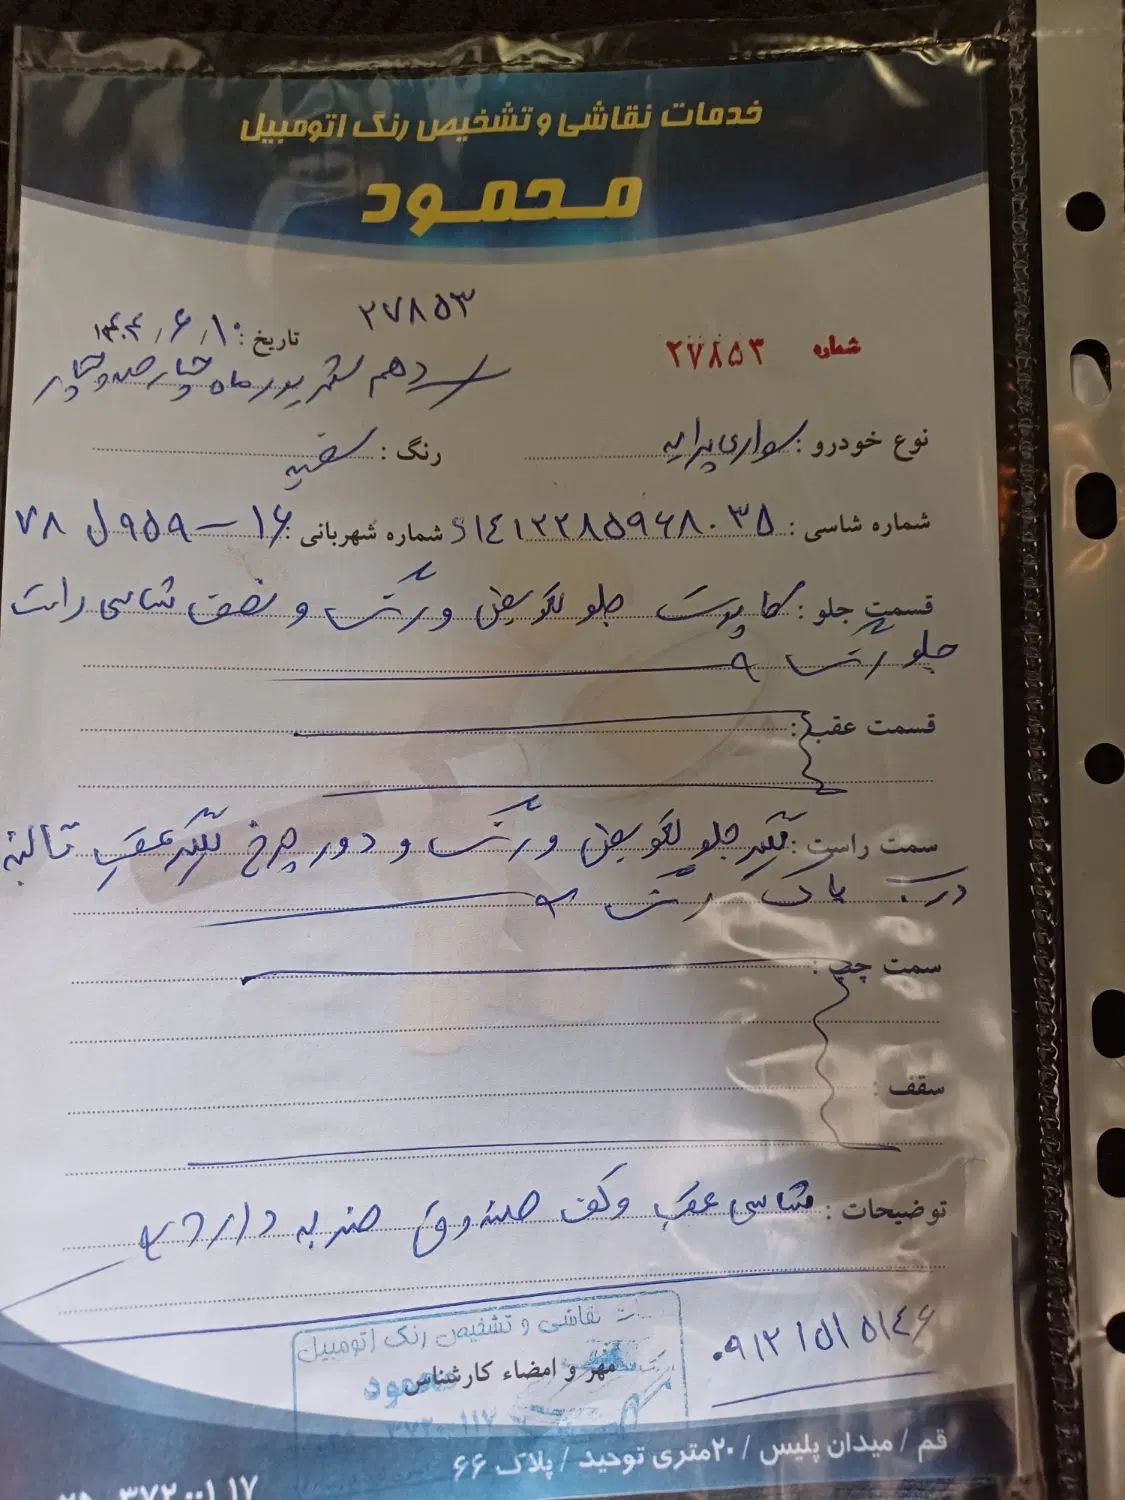 خدمات نقاشی و تشخیص رنگ اتومبیل
محمود
۲۷۸۵۳
شماره ۲۷۸۵۳
تاریخ : ۱۴۰۴/۶/۱۰
دهم شهریور ماه چهارصد و چهار
نوع خودرو : سواری پراید رنگ : سفید
شماره شاسی : S۱۴۱۲۲۸۵۹۶۸۰۳۵ شماره شهربانی : ۱۶ - ۹۵۹ ل ۷۸
قسمت جلو : کاپوت جلو تعویض و رنگ و نصف شاسی راست
جلو رنگ
قسمت عقب :
سمت راست : گلگیر جلو تعویض و رنگ و دور چرخ گلگیر عقب تا لبه
درب باک رنگ
سمت چپ :
سقف :
توضیحات : شاسی عقب و کف صندوق ضربه دارد
۰۹۱۲۱۵۱۵۱۴۶
نقاشی و تشخیص رنگ اتومبیل
مهر و امضاء کارشناس
محمود
قم / میدان پلیس / ۲۰متری توحید / پلاک ۶۶
۰۲۵ - ۳۷۲۰۰۱۱۷